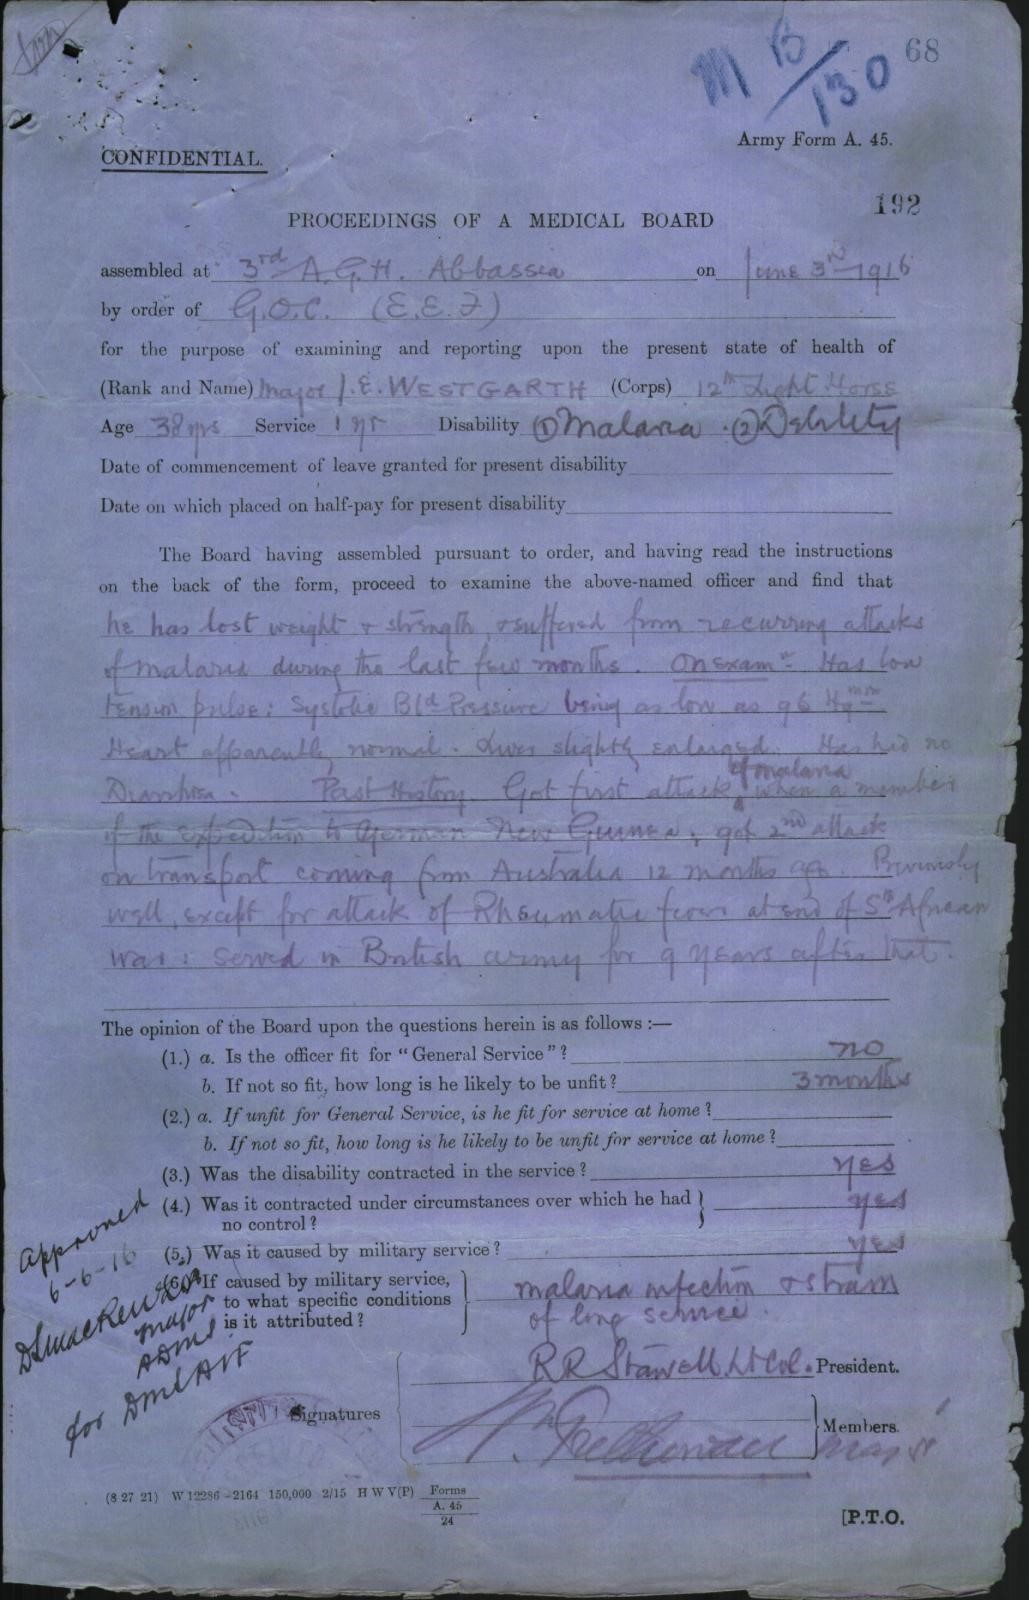 68
M B/130
Army Form A. 45.
CONFIDENTIAL.
192
PROCEEDINGS OF A MEDICAL BOARD
assembled at 3rd A.G.H. Abbassia on June 3rd 1916
by order of G.O.C. (E.E.F)
for the purpose of examining and reporting upon the present state of health of
(Rank and Name) Major J.E. WESTGARTH (Corps) 12th Light Horse
Age 38 yrs Service 1 yr Disability (1) Malaria . (2) Debility
Date of commencement of leave granted for present disability
Date on which placed on half-pay for present disability
The Board having assembled pursuant to order, and having read the instructions
on the back of the form, proceed to examine the above-named officer and find that
he has lost weight & strength, & suffered from recurring attacks
of malaria during the last few months. On examn. Has low
tension pulse: Systolic Bld Pressure being as low as 96 Hg mm
Heart apparently normal. Liver slightly enlarged. Has had no
Diarrhoea. Past History. Got first attack of malaria when a member
of the expedition to German New Guinea, got 2nd attack
on transport coming from Australia 12 months ago. Previously
well, except for attack of Rheumatic fever at end of Sth African
War: served in British army for 9 years after that.
The opinion of the Board upon the questions herein is as follows :—
(1.) a. Is the officer fit for "General Service"? no
b. If not so fit, how long is he likely to be unfit? 3 months
(2.) a. If unfit for General Service, is he fit for service at home?
b. If not so fit, how long is he likely to be unfit for service at home?
(3.) Was the disability contracted in the service? yes
(4.) Was it contracted under circumstances over which he had
no control? yes
(5.) Was it caused by military service? yes
(6.) If caused by military service,
to what specific conditions
is it attributed?
malaria infection & strain
of long service.
Approved
6-6-16
DS Mackenzie
Major
ADMS
for DMS AIF
R R Stawell. Lt Col. President.
Signatures
Members.
Major
(8 27 21) W 12286-2164 150,000 2/15 H W V(P) Forms
A. 45
24
[P.T.O.